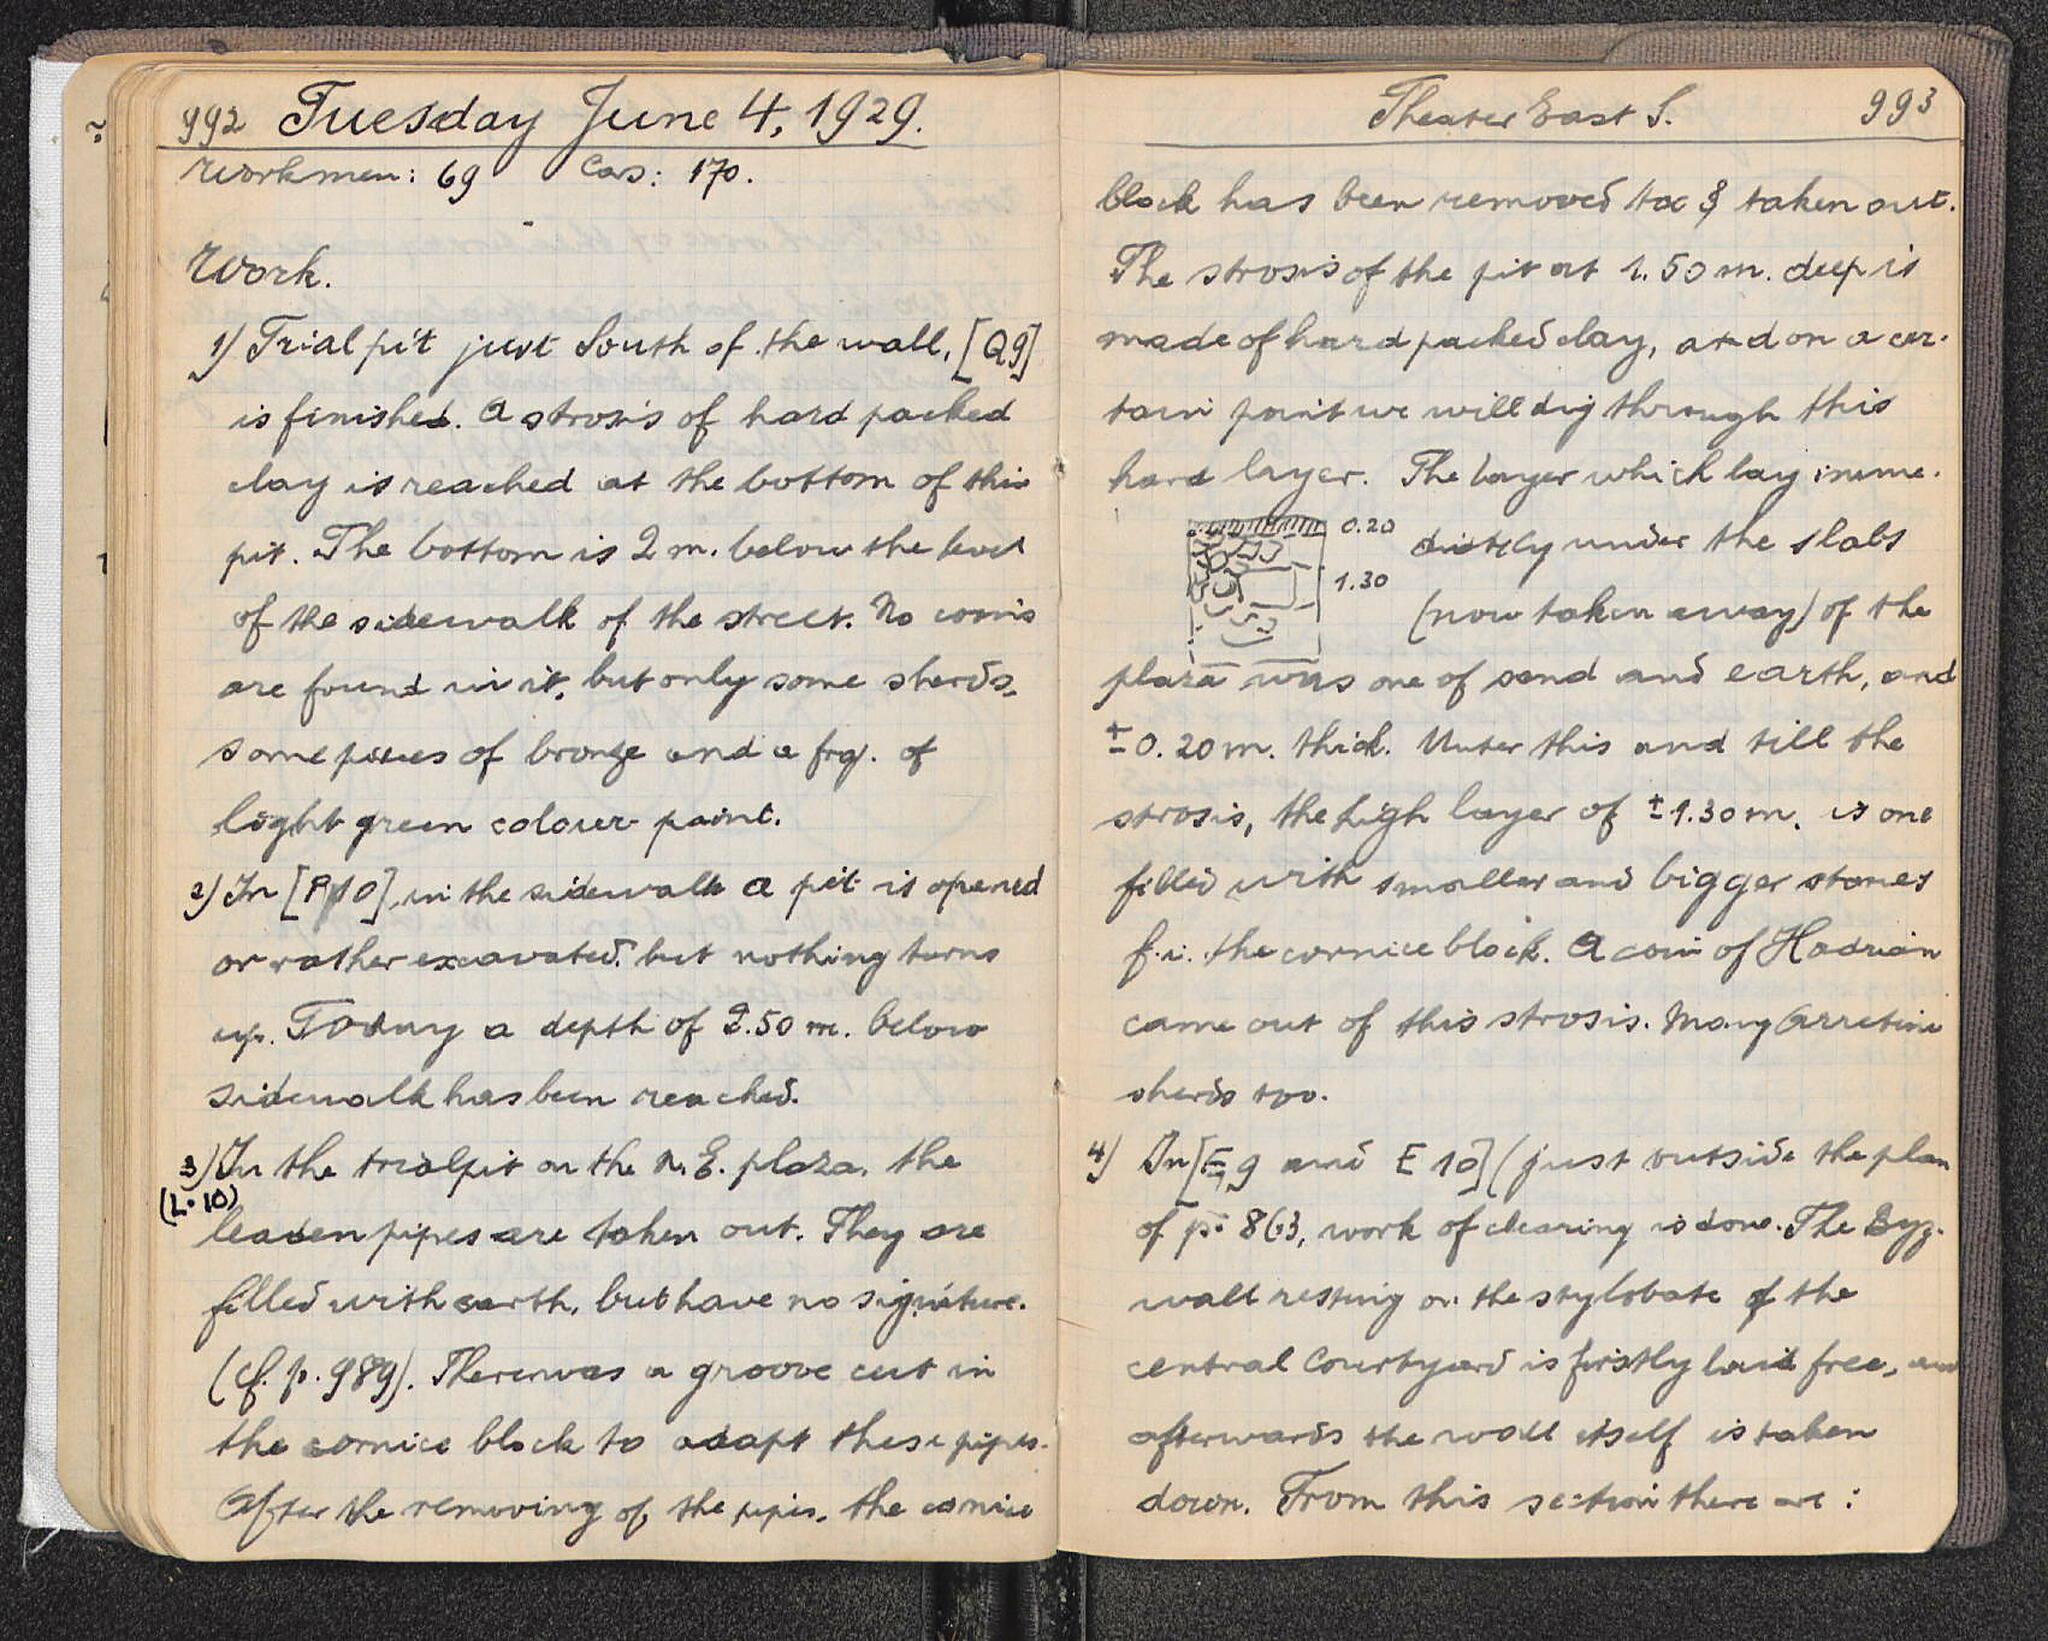 992 Tuesday June 4, 1929.
Workmen: 69 Cars: 170.
Work.
1) Trial pit just South of the wall, [Q9]
is finished. A strosis of hard packed
clay is reached at the bottom of this
pit. The bottom is 2 m. below the level
of the sidewalk of the street. No coins
are found in it, but only some sherds,
some pieces of bronze and a frg. of
light green colour paint.
2) In [P10], in the sidewalk a pit is opened
or rather excavated, but nothing turns
up. Today a depth of 2.50 m. below
sidewalk has been reached.
3) In the trialpit on the N.E. plaza, the
(L. 10)
leaden pipes are taken out. They are
filled with earth, but have no signature.
(cf. p. 989). There was a groove cut in
the cornice block to adapt these pipes.
After the removing of the pipes, the cornice
Theater East S. 993
block has been removed too & taken out.
The strosis of the pit at 1.50 m. deep is
made of hard packed clay, and on a cer-
tain point we will dig through this
hard layer. The layer which lay imme-
0.20 diately under the slabs
1.30 (now taken away) of the
plaza was one of sand and earth, and
± 0.20 m. thick. Unter this and till the
strosis, the high layer of ± 1.30 m. is one
filled with smaller and bigger stones
f.i. the cornice block. A coin of Hadrian
came out of this strosis. Many Arretine
sherds too.
4) In [E 9 and E 10] (just outside the plan
of p. 863, work of clearing is done. The Byz.
wall resting on the stylobate of the
central Courtyard is firstly laid free, and
afterwards the wall itself is taken
down. From this section there are: